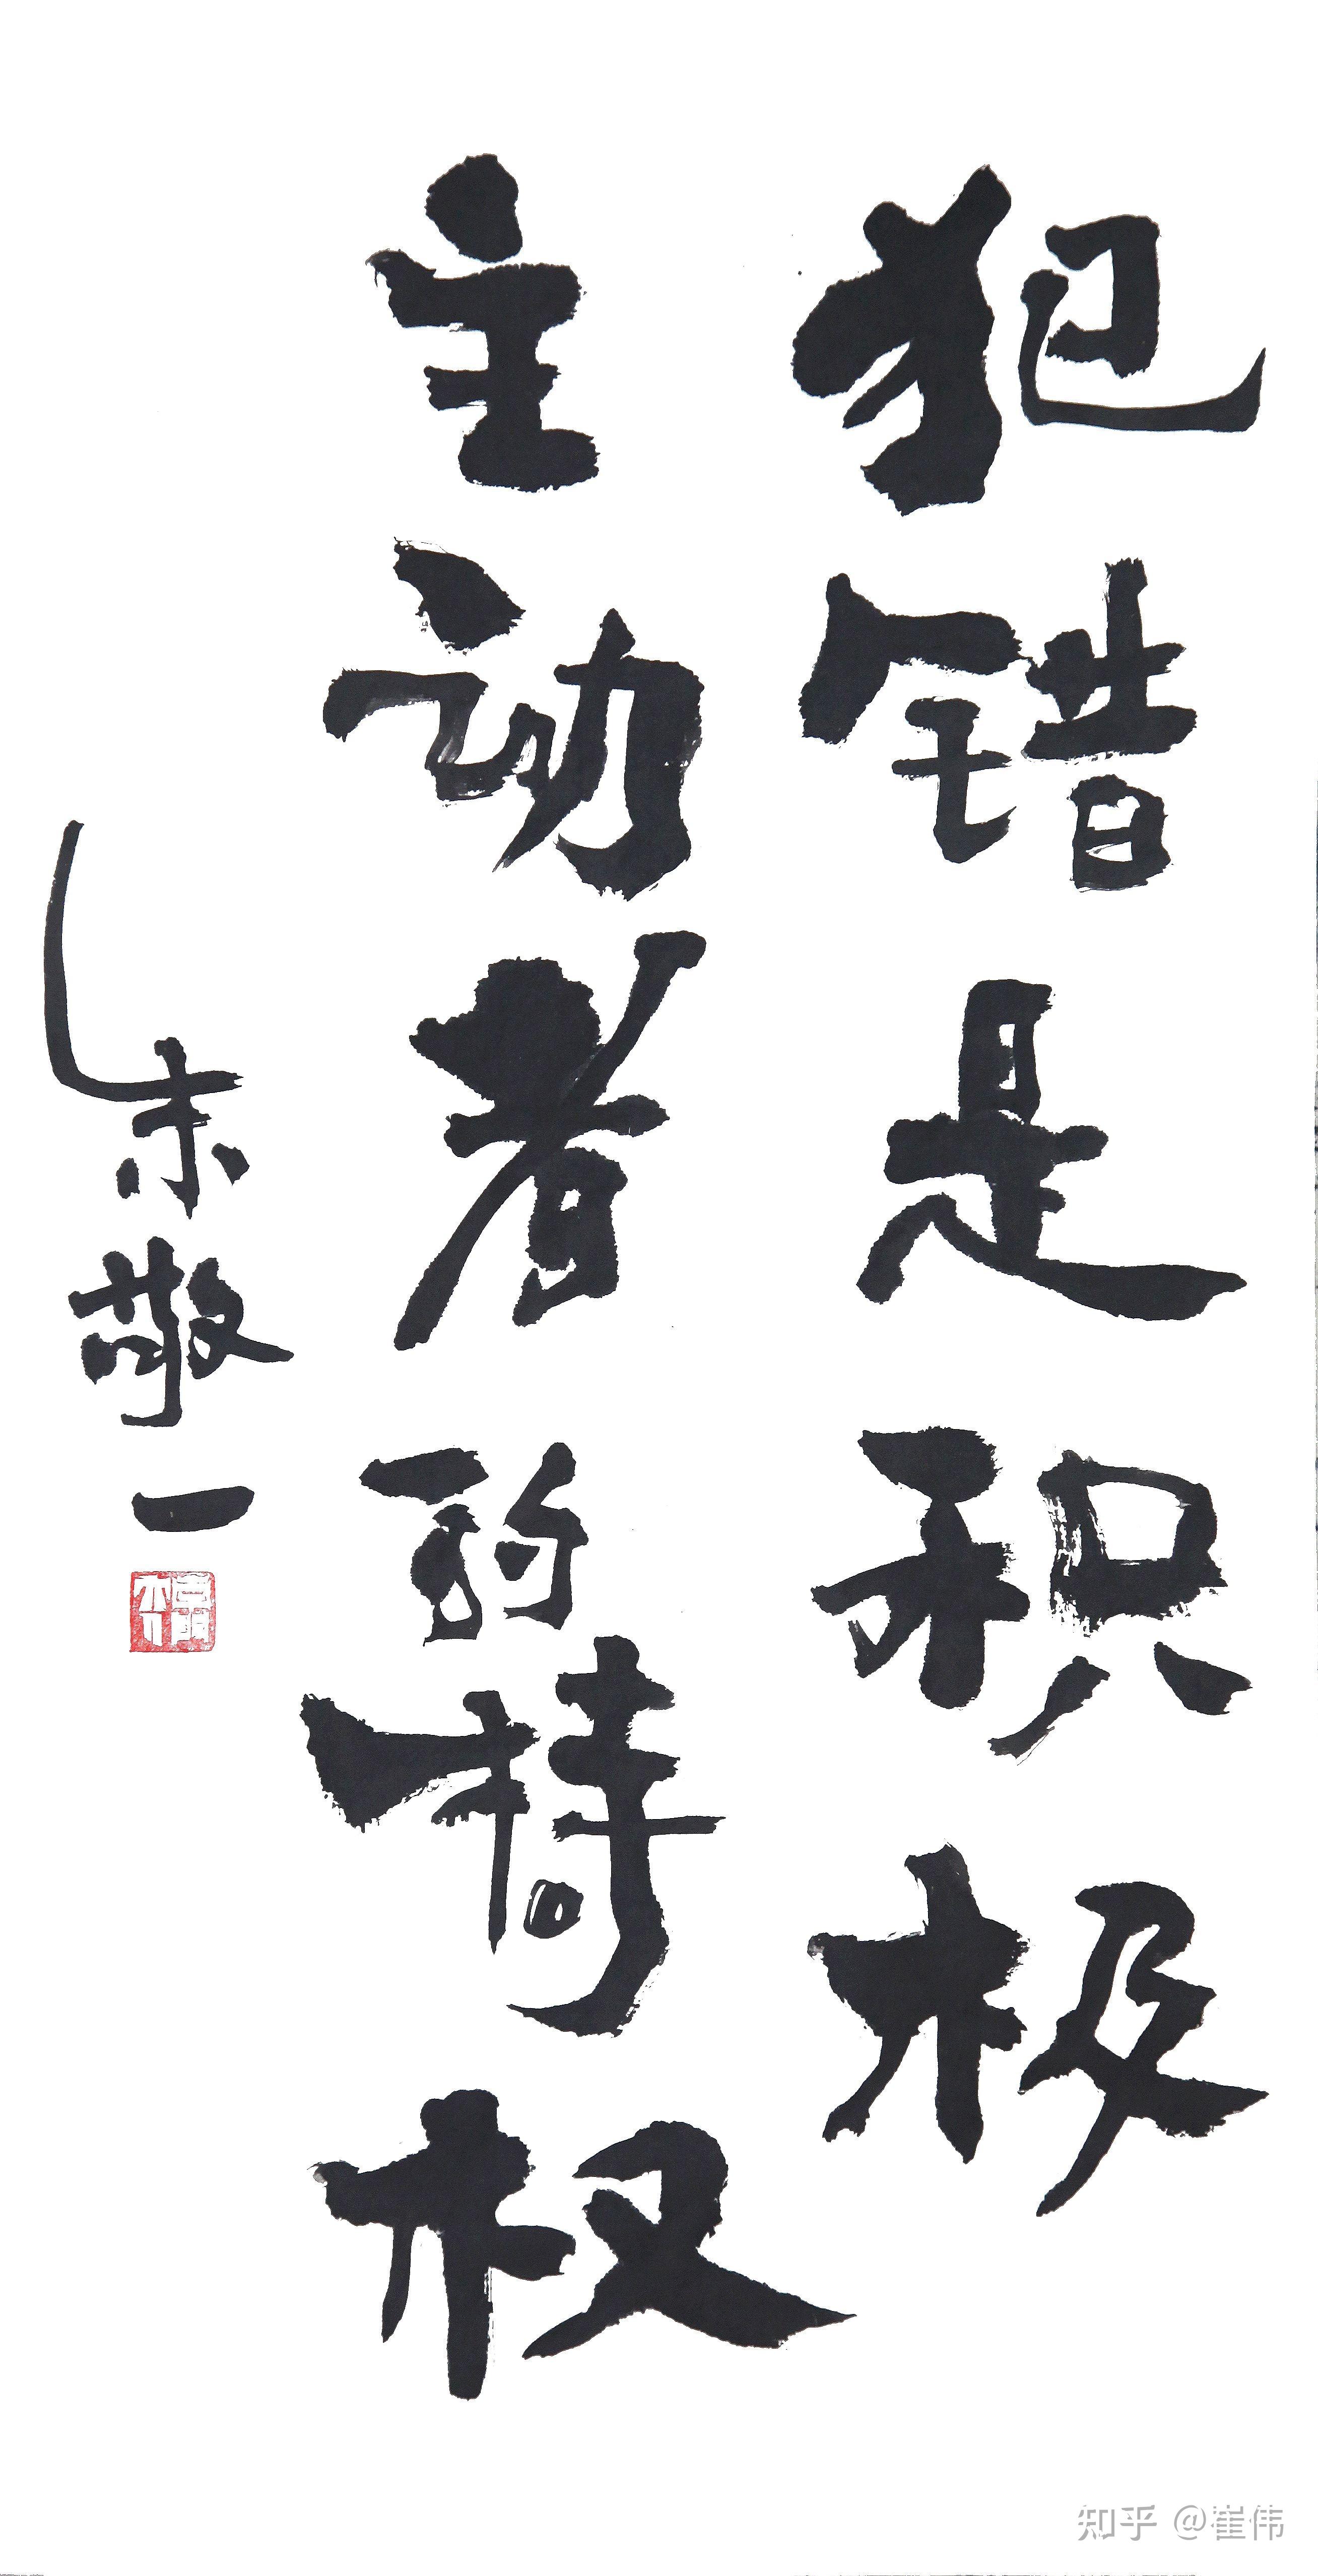 犯错是积极
主动者的特权
朱敬一
知乎 @崔伟